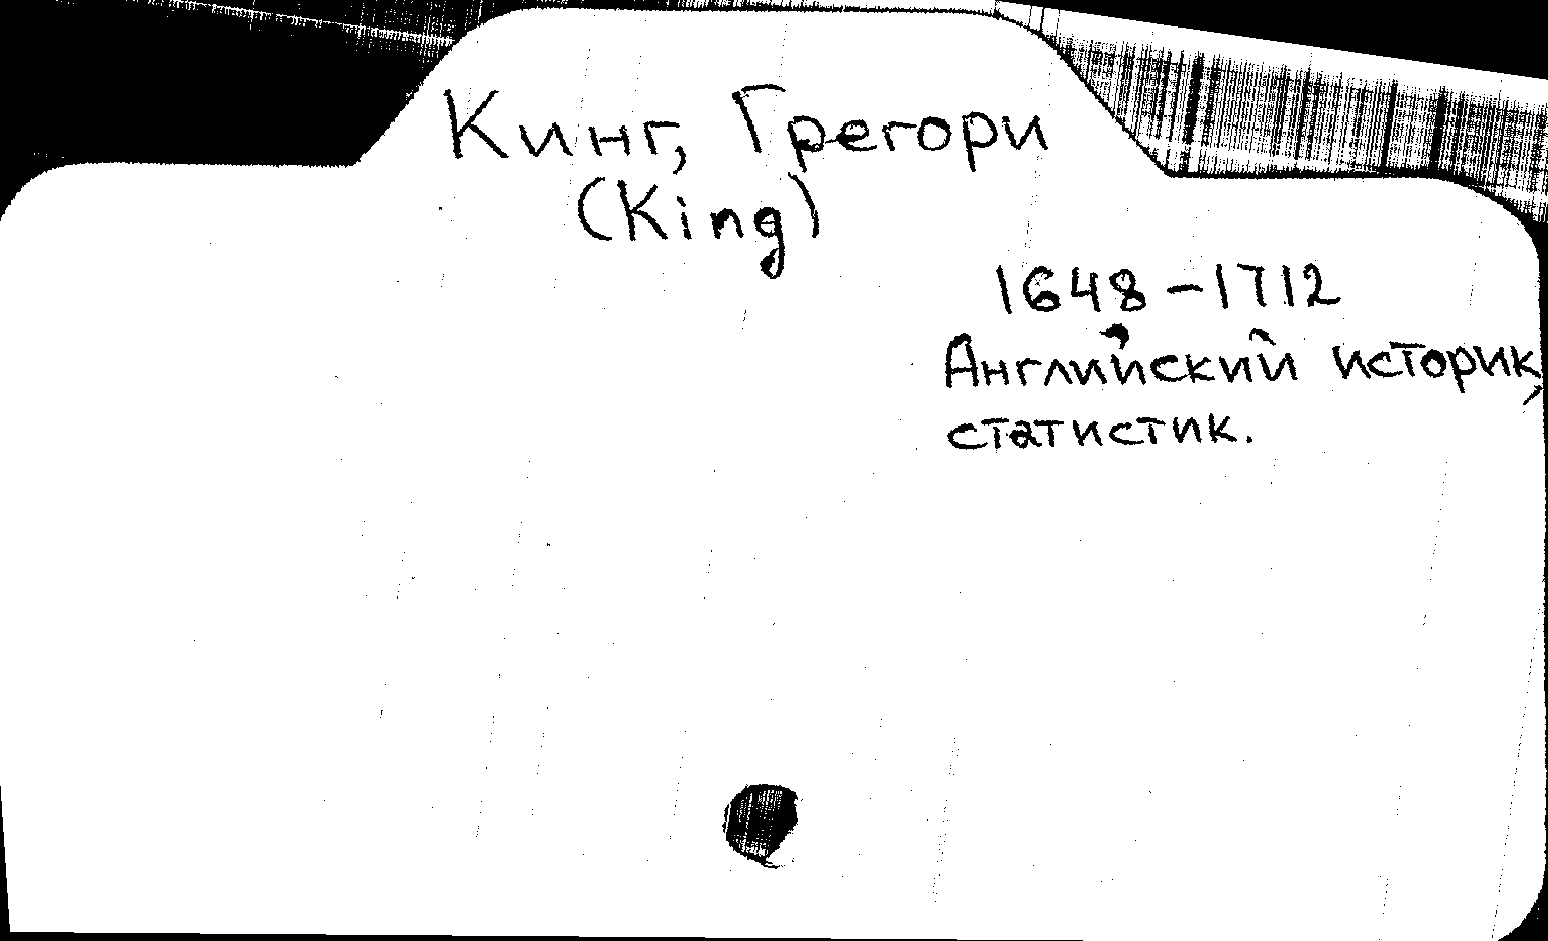 Кинг, Грегори
(King)
1648-1712
Английский историк,
статистик.